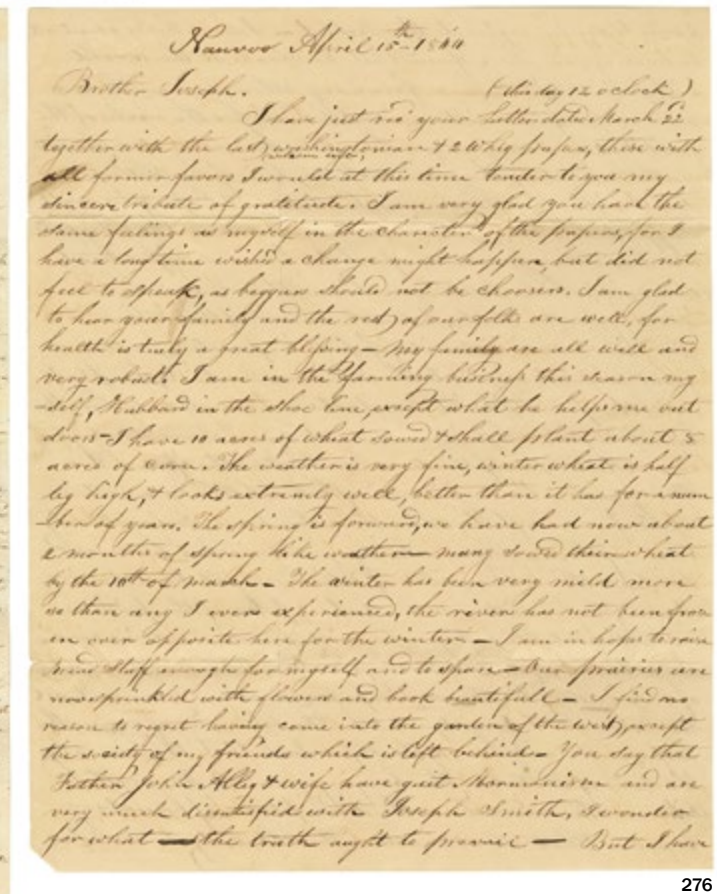 Nauvoo April 15th 1844
Brother Joseph. (thisday 12 oclock)
I have just rec your letter dated March 22
together with the last washingtonian & 2 Whig papers, these with
all former favors I would at this time tender to you my
sincere tribute of gratitude. I am very glad you have the
same feelings as myself in the character of the papers, for I
have a long time wished a change might happen, but did not
feel to speak, as beggars should not be choosers. I am glad
to hear your family and the rest of our folks are well, for
health is truly a great blessing — my family are all well and
very robust. I am in the farming business this season my
-self, Hubbard in the shoe line, except what he helps me out
doors — I have 10 acres of wheat sowed & shall plant about 8
acres of corn. The weather is very fine, winter wheat is half
leg high, & looks extremely well, better than it has for a num
-ber of years. The spring is forward, we have had now about
2 months of spring like weather — many sowed their wheat
by the 10th of march — The winter has been very mild more
so than any I ever experienced, the river has not been froz
en over opposite here for the winter — I am in hopes to raise
bread stuff enough for myself and to spare — Our prairies are
now sprinkled with flowers and look beautifull — I find no
reason to regret having come into the garden of the west, except
the society of my friends which is left behind — You say that
Father John Alley & wife have quit Mormonism and are
very much dissatisfied with Joseph Smith, I wonder
for what — the truth aught to prevail — But I have
276